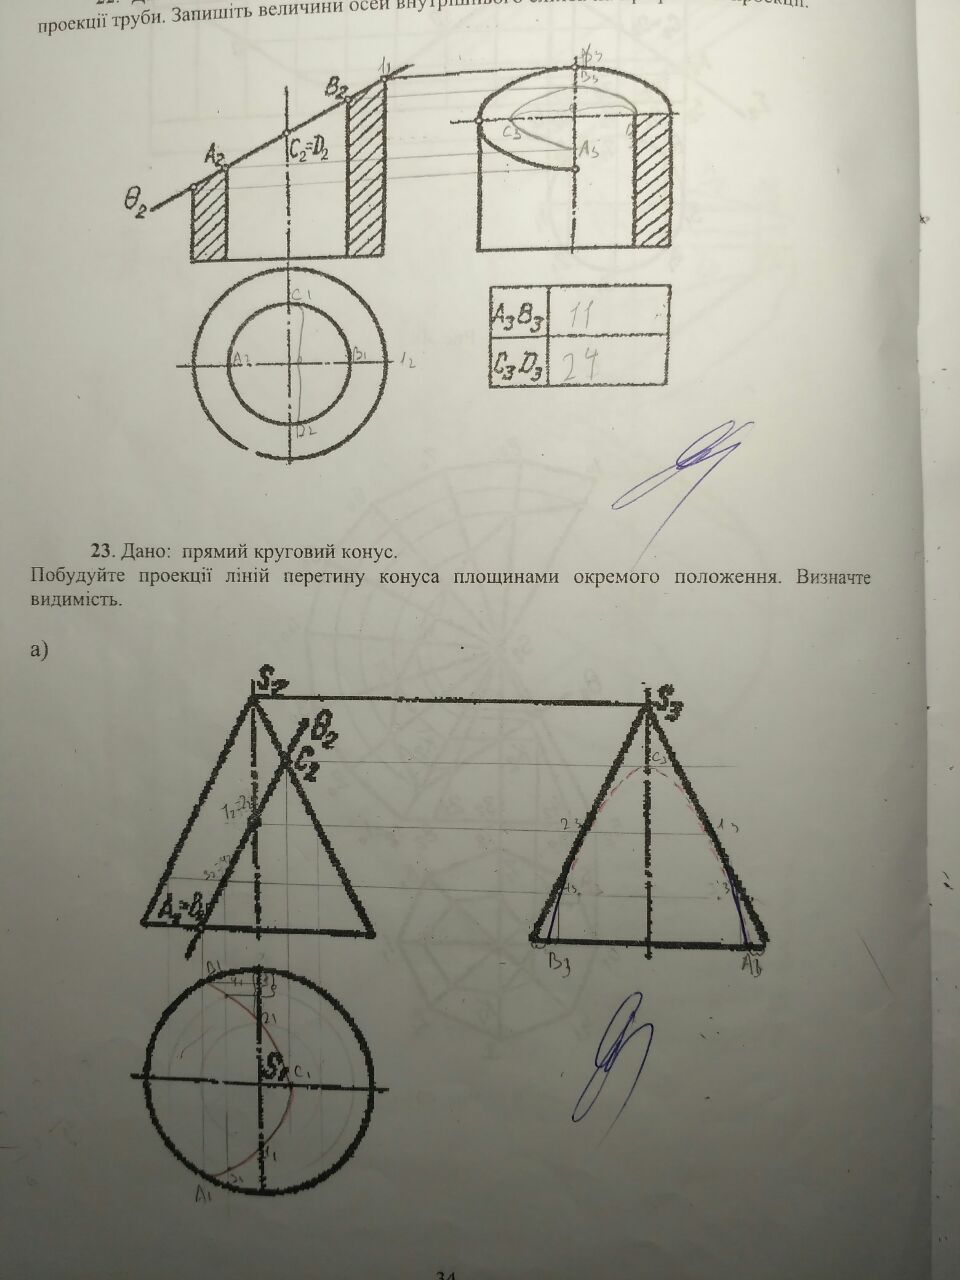 проекції труби. Запишіть величини осей внутрішнього
Θ₂
A₂
B₂
1₁
C₂=D₂
A₃
B₃
C₃
A₃
C₁
A₂
B₁
1₂
D₂
A₃B₃ 11
C₃D₃ 24
23. Дано: прямий круговий конус.
Побудуйте проекції ліній перетину конуса площинами окремого положення. Визначте
видимість.
а)
S₂
Θ₂
C₂
1₂=2₂
A₂=B₂
S₃
C₃
2₃
1₃
B₃
A₃
B₁
2₁
S₁
C₁
1₁
3₁
A₁
34